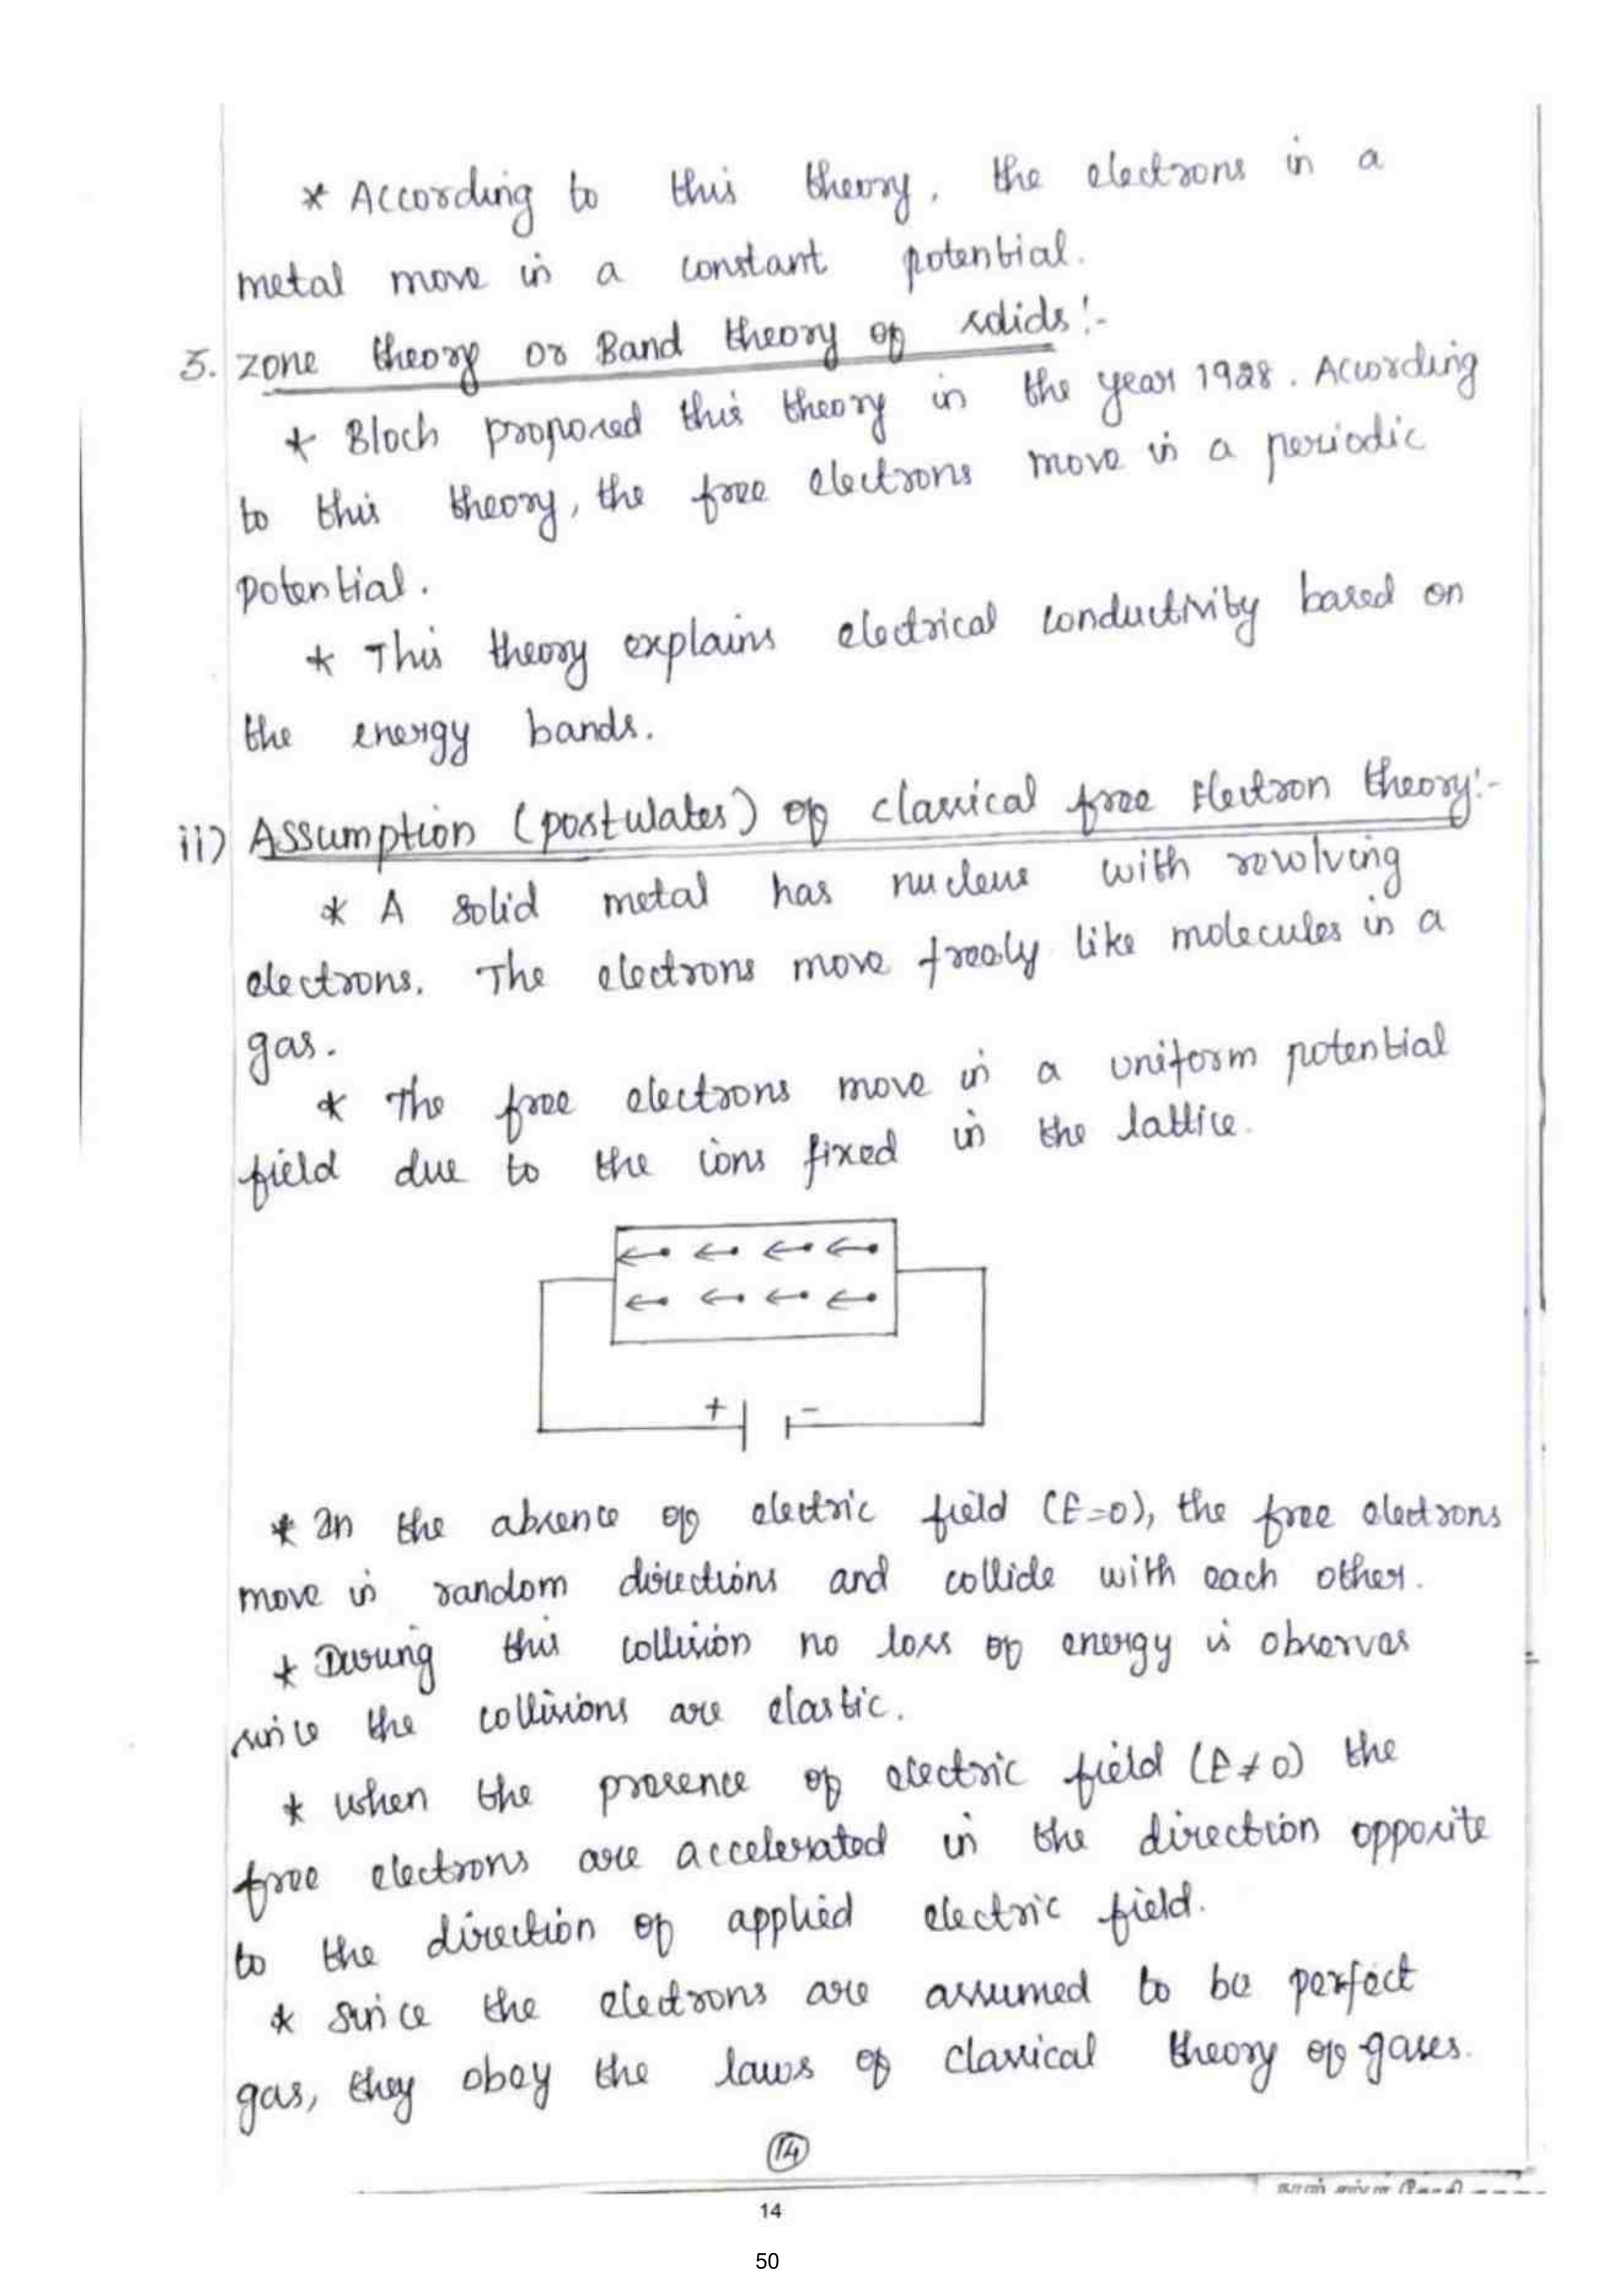 * According to this theory, the electrons in a
metal move in a constant potential.
3. Zone theory or Band theory of solids:-
* Bloch proposed this theory in the year 1928. According
to this theory, the free electrons move in a periodic
potential.
* This theory explains electrical conductivity based on
the energy bands.
ii) Assumption (postulates) of classical free Electron theory:-
* A solid metal has nucleus with revolving
electrons. The electrons move freely like molecules in a
gas.
* The free electrons move in a uniform potential
field due to the ions fixed in the lattice.
+ -
* In the absence of electric field (E=0), the free electrons
move in random directions and collide with each other.
* During this collision no loss of energy is observas
since the collisions are elastic.
* When the presence of electric field (E≠0) the
free electrons are accelerated in the direction opposite
to the direction of applied electric field.
* Since the electrons are assumed to be perfect
gas, they obey the laws of classical theory of gases.
14
14
50